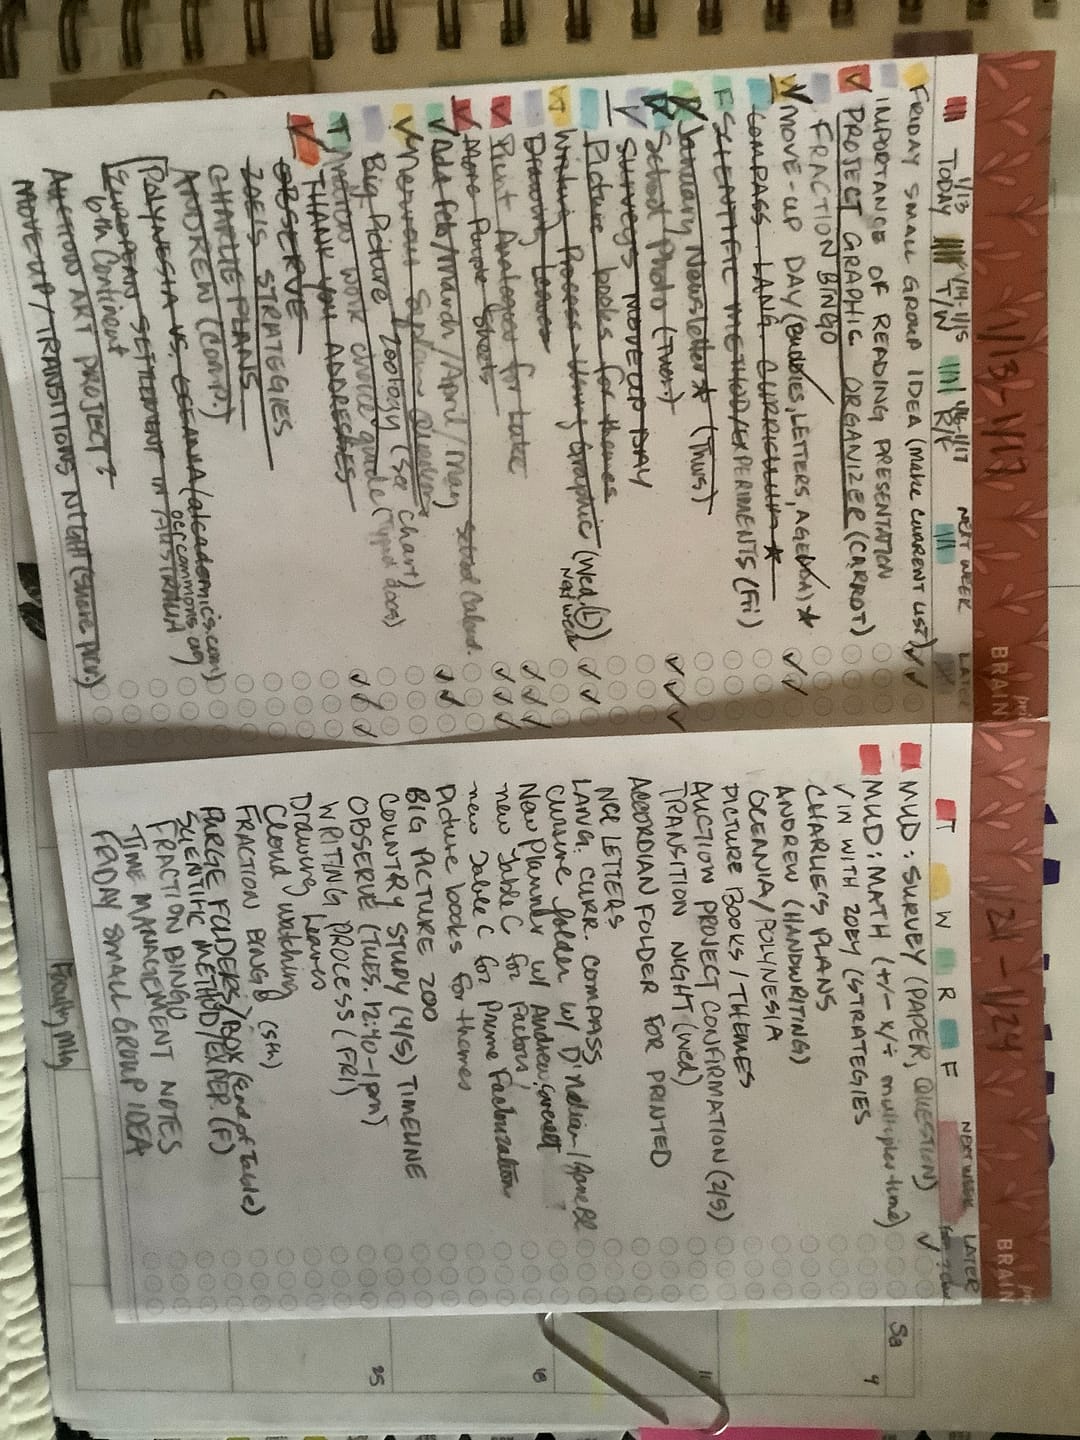 1/13-1/17
BRAIN
1/13 1/14-1/15 1/16-1/17 NEXT WEEK LATER
TODAY T/W R/F
FRIDAY SMALL GROUP IDEA (make current list)
IMPORTANCE OF READING PRESENTATION
PROJECT GRAPHIC ORGANIZER (CARROT)
FRACTION BINGO
MOVE-UP DAY (Buddies, LETTERS, AGENDA) *
COMPASS LANG. CURRICULUM *
SCIENTIFIC METHOD/EXPERIMENTS (Fri)
January Newsletter * (Thurs)
School Photo (Thurs.)
SURVEYS MOVE UP DAY
Picture books for themes
Writing Process Graphic (Wed.)
Next week
Drawing Leaves
Print Analogies for
More Purple Sheets
Add Feb/March/April/May School Calend.
Big Picture Zoology (See Chart)
work choice guide (Typed docs)
THANK YOU ADDRESSES
OBSERVE
ZOE'S STRATEGIES
CHARLIE PLANS
ANDREW (CONT.)
POLYNESIA VS. OCEANIA
EUROPEAN SETTLEMENT in AUSTRALIA
6th Continent
AUCTION ART PROJECT?
MOVE UP/TRANSITIONS NIGHT
1/21-1/24
BRAIN
T W R F NEXT WEEK LATER
MUD: SURVEY (PAPER, QUESTION)
MUD: MATH (+/- x/÷ multiplier time)
VIN WITH ZOEY (STRATEGIES
CHARLIE'S PLANS
ANDREW (HANDWRITING)
OCENNIA/POLYNESIA
PICTURE BOOKS/THEMES
AUCTION PROJECT CONFIRMATION (2/5)
TRANSITION NIGHT (Wed)
ACCORDIAN FOLDER FOR PRINTED
NCE LETTERS
LANG. CURR. COMPASS
cursive folder w/
New Planner w/ Andrew
new Table C for Factors
new Table C for Prime Factorization
Picture books for themes
BIG PICTURE ZOO
COUNTRY STUDY (4/5) TIMELINE
OBSERVE (TUES. 12:40-1pm)
WRITING PROCESS (FRI)
Drawing Leaves
Cloud watching
FRACTION BINGO (5th)
PURGE FOLDERS/BOX (End of Table)
SCIENTIFIC METHOD/EXPER. (F)
FRACTION BINGO
TIME MANAGEMENT NOTES
FRIDAY SMALL GROUP IDEA
Faculty Mtg
Sa
4
11
18
25